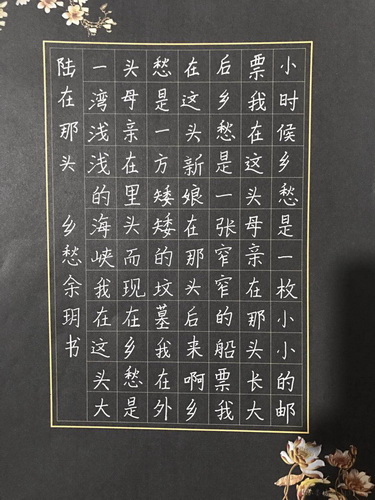 小时候乡愁是一枚小小的邮
票我在这头母亲在那头长大
后乡愁是一张窄窄的船票我
在这头新娘在那头后来啊乡
愁是一方矮矮的坟墓我在外
头母亲在里头而现在乡愁是
一湾浅浅的海峡我在这头大
陆在那头 乡愁余玥书